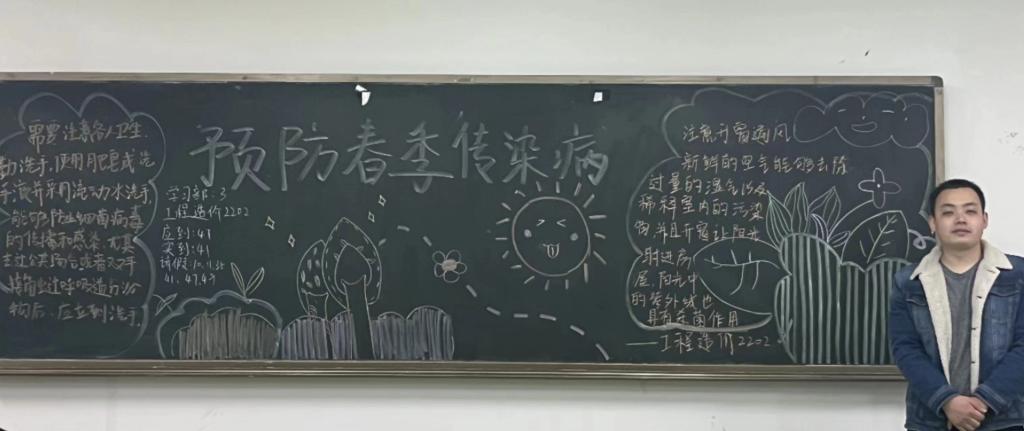 预防春季传染病
需要注意个人卫生.
勤洗手,使用肥皂或洗
手液并用流动水洗手
能够防止细菌病毒
的传播和感染.尤其
去过公共场合或者双手
接触过呼吸道分泌
物后,应立刻洗手.
学习部:3
工程造价2202
应到:41
实到:41
请假:
41.47.43
注意开窗通风
新鲜的空气能够去除
过量的湿气以及
稀释室内的污染
物.并且开窗让阳光
射进房
屋.阳光中
的紫外线也
具有杀菌作用
——工程造价2202